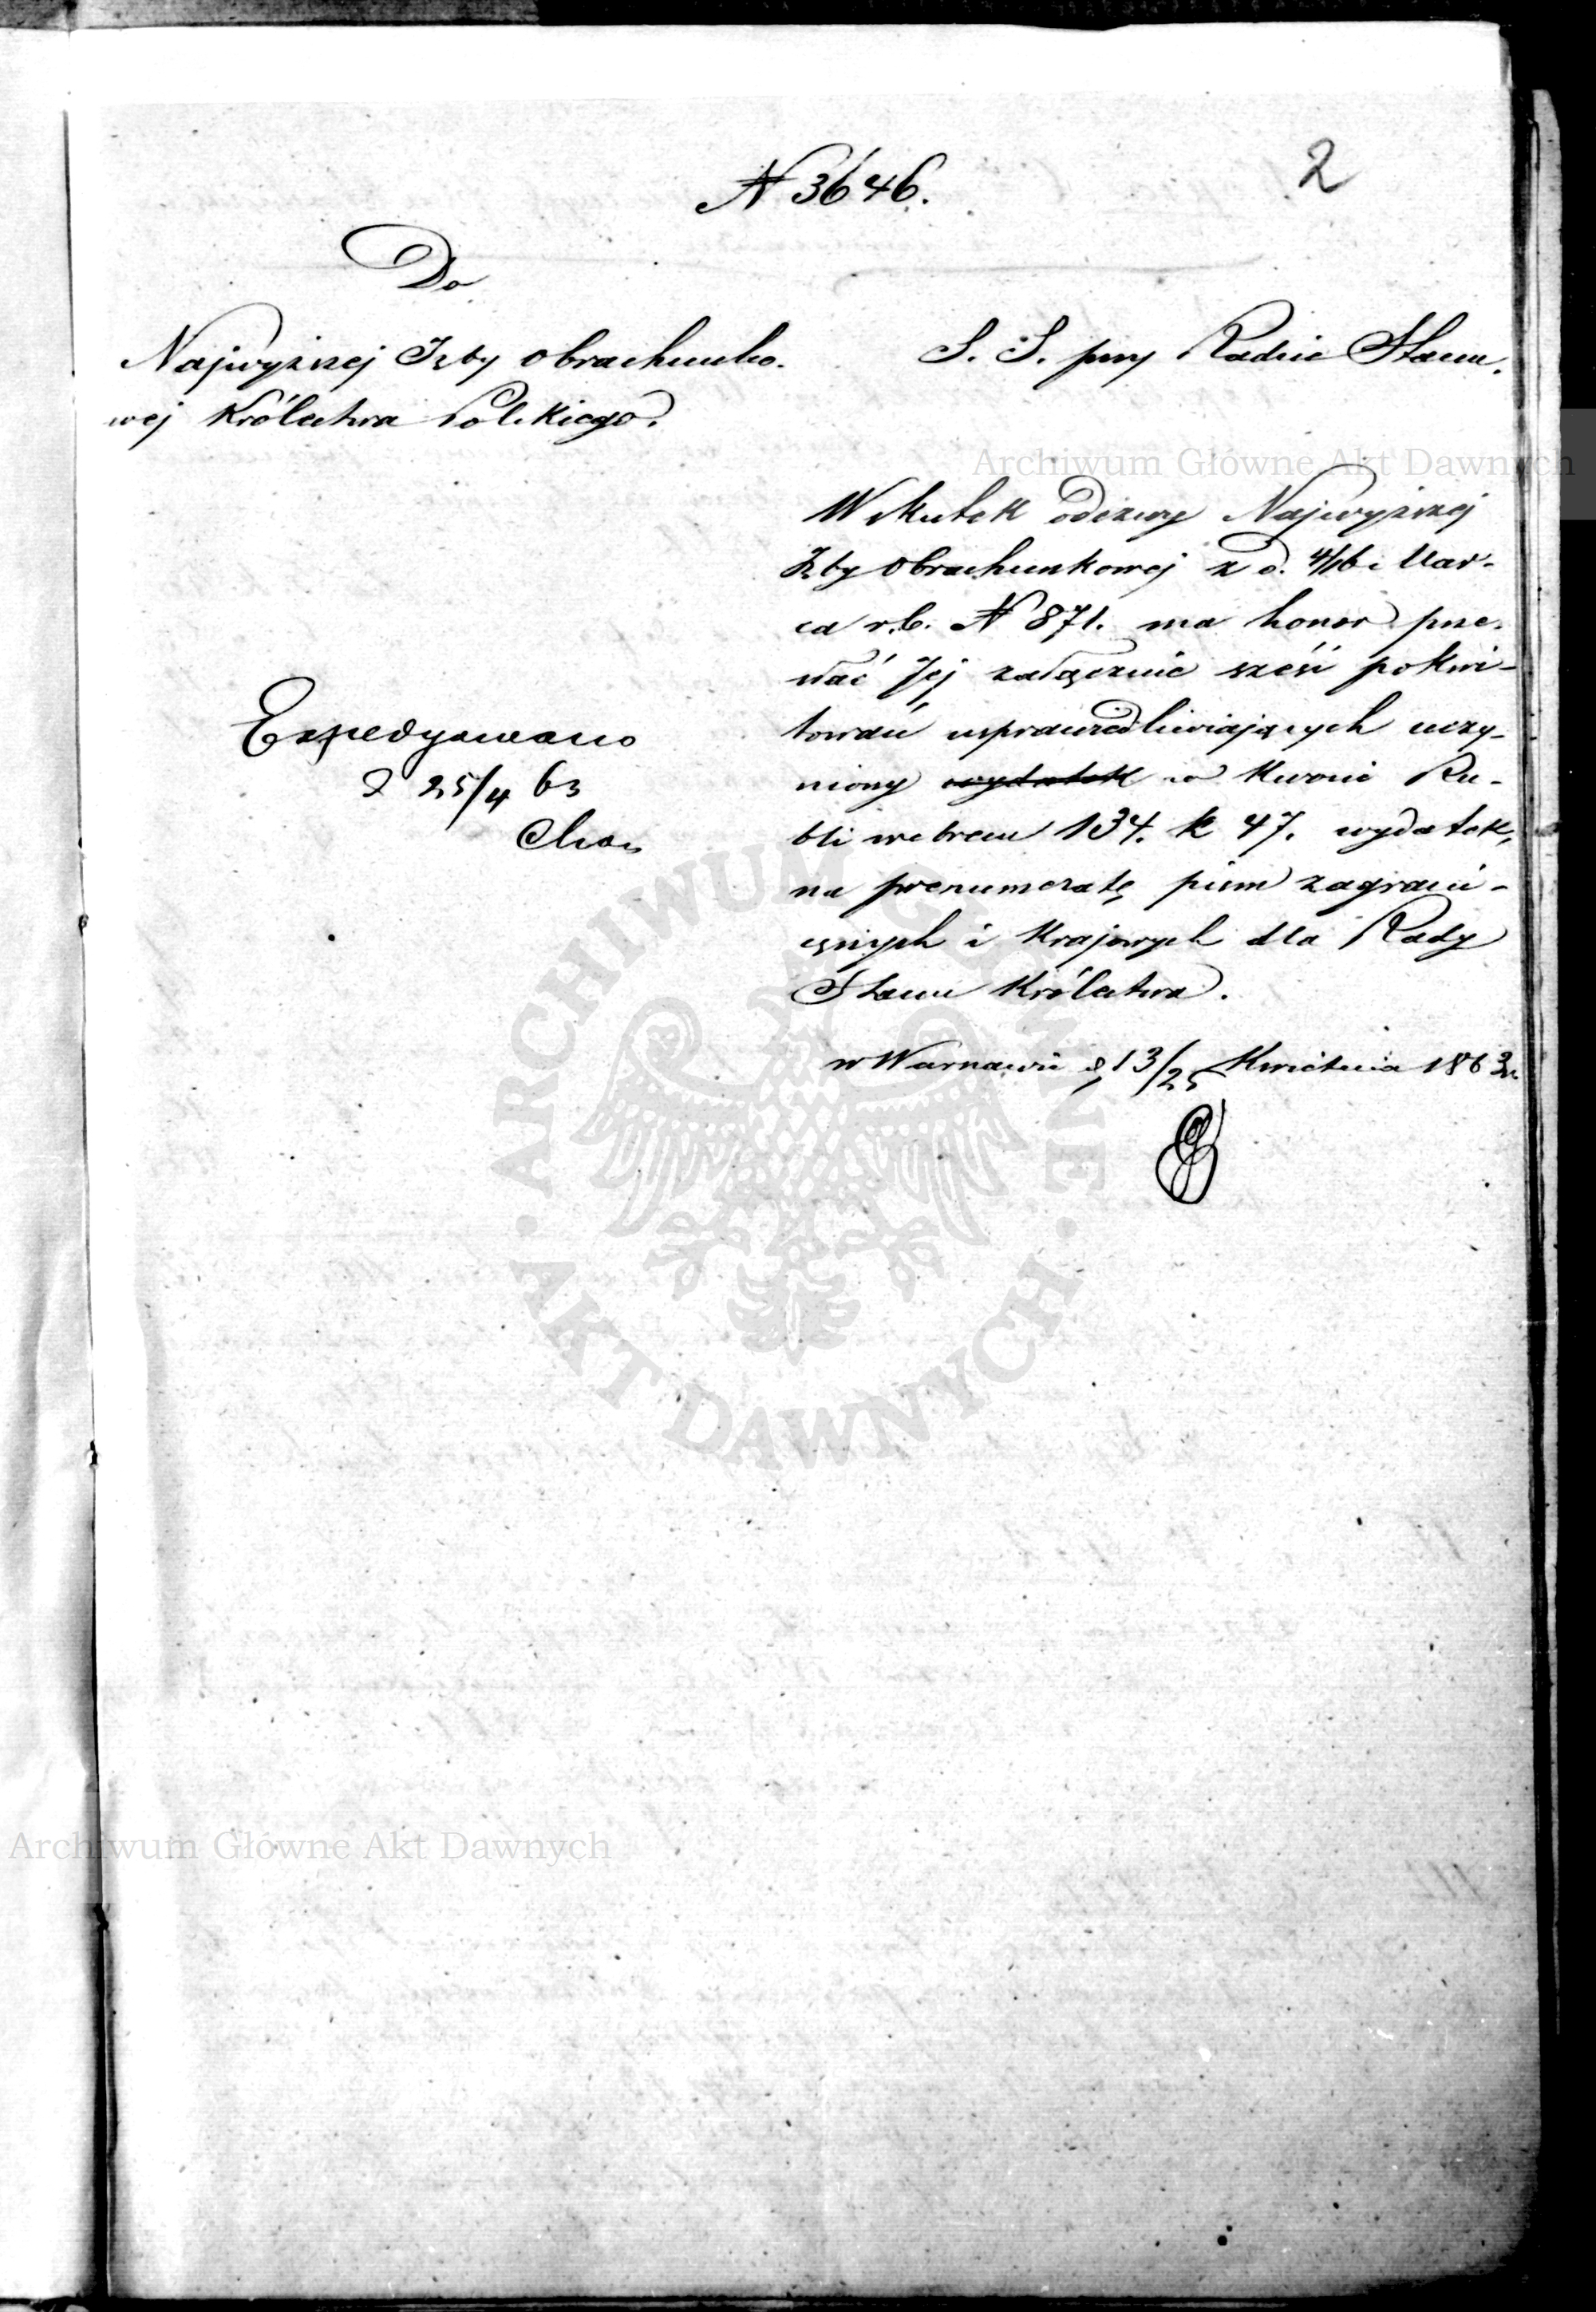 2
N 3646.
Do
Najwyższej Izby Obrachunko-
wej Królestwa Polskiego.
S. S. przy Radzie Stanu.
Wskutek odezwy Najwyższej
Izby Obrachunkowej z d. 4/16 Mar-
ca r.b. N 871. ma honor prze-
słać Jej załącznie sześć pokwi-
towań usprawiedliwiających uczy-
niony wydatek w kwocie Ru-
bli srebrem 134. k 47. wydatek,
na prenumeratę pism zagrani-
cznych i krajowych dla Rady
Stanu Królestwa.
w Warszawie d 13/25 Kwietnia 1863 r.
Expedyowano
d 25/4 63
Archiwum Główne Akt Dawnych
ARCHIWUM GŁÓWNE
AKT DAWNYCH
Archiwum Główne Akt Dawnych